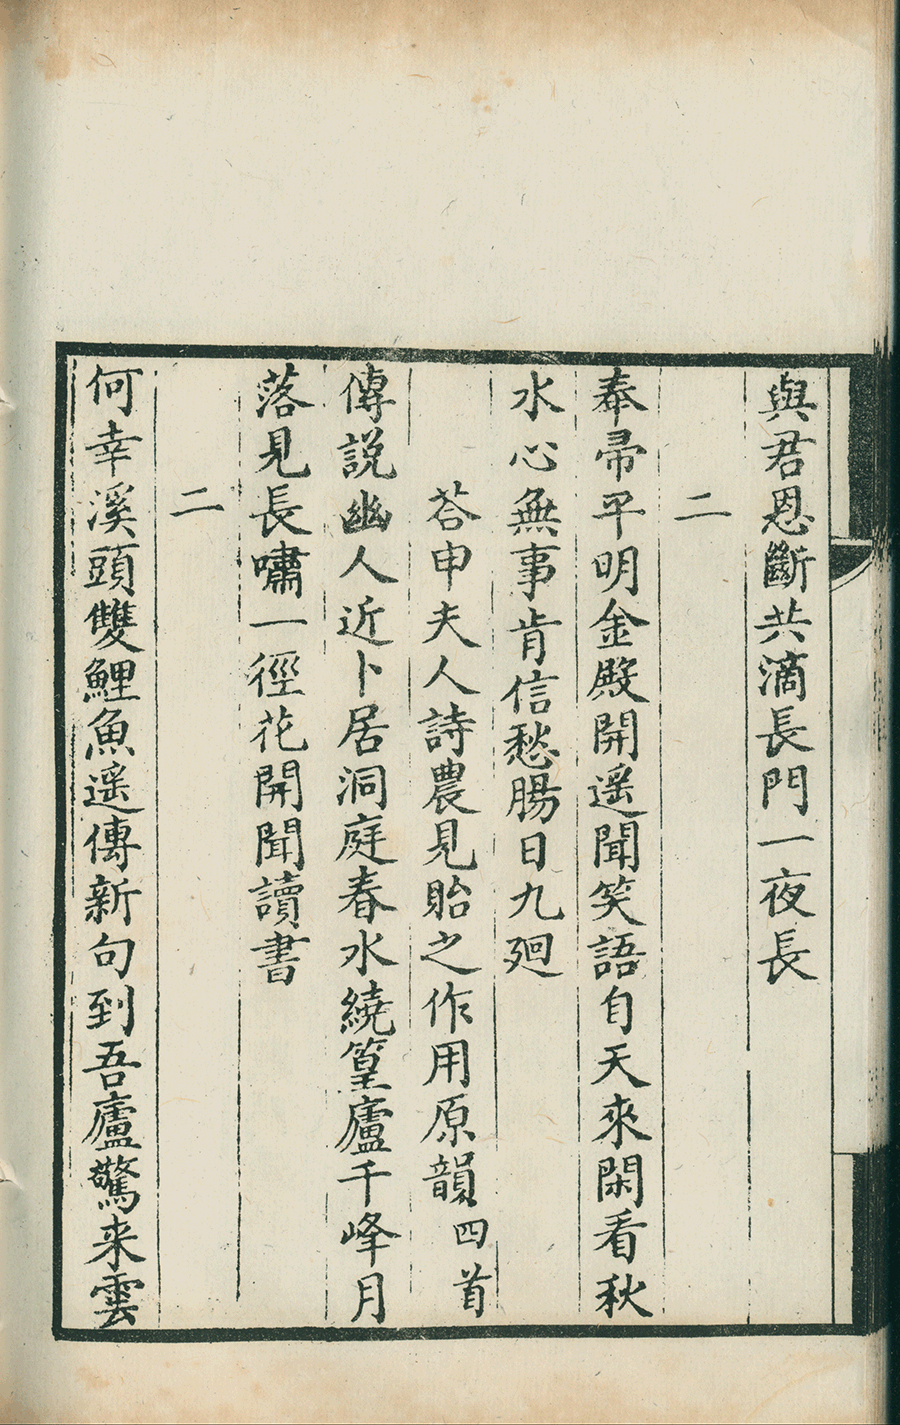 與君恩斷共滴長門一夜長
二
奉帚平明金殿開遥聞笑語自天來閑看秋
水心無事肯信愁腸日九廻
荅申夫人詩農見貽之作用原韻四首
傳説幽人近卜居洞庭春水繞篁廬千峰月
落見長嘯一徑花開聞讀書
二
何幸溪頭雙鯉魚遥傳新句到吾廬驚来雲